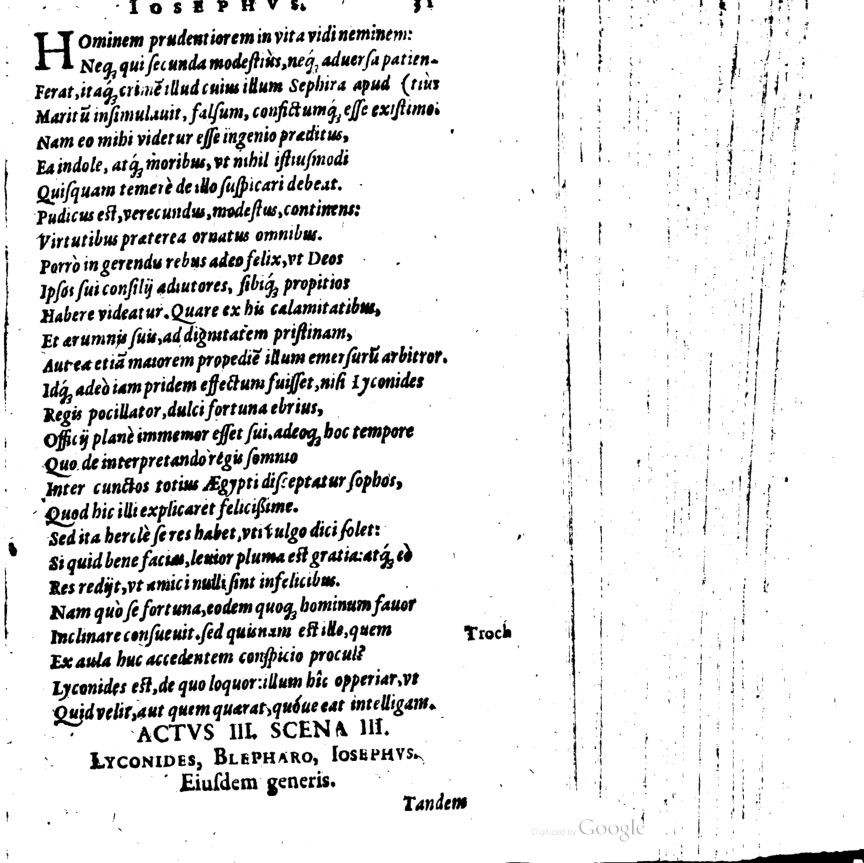 IOSEPHVS. 31
HOminem prudentiorem in vita vidi neminem:
Neq́; qui ſecunda modeſtiùs, neq́; aduerſa patien-
Ferat, itaq́; crimē illud cuius illum Sephira apud (tiùs
Maritū inſimulauit, falſum, confictumq́; eſſe exiſtimo.
Nam eo mihi videtur eſſe ingenio præditus,
Ea indole, atq́; moribus, vt nihil iſtiuſmodi
Quiſquam temerè de illo ſuſpicari debeat.
Pudicus eſt, verecundus, modeſtus, continens:
Virtutibus præterea ornatus omnibus.
Porrò in gerendis rebus adeo felix, vt Deos
Ipſos ſui conſilij adiutores, ſibiq́; propitios
Habere videatur. Quare ex his calamitatibus,
Et ærumnis ſuis, ad dignitatem priſtinam,
Aut ea etiā maiorem propediē illum emerſurū arbitror.
Idq́; adeò iam pridem effectum fuiſſet, niſi Lyconides
Regis pocillator, dulci fortuna ebrius,
Officij planè immemor eſſet ſui, adeoq́; hoc tempore
Quo de interpretando regis ſomnio
Inter cunctos totius Ægypti diſceptatur ſophos,
Quod hic illi explicaret feliciſſime.
Sed ita herclè ſe res habet, vti vulgo dici ſolet:
Si quid bene facias, leuior pluma eſt gratia: atq́; eò
Res redijt, vt amici nulli ſint infelicibus.
Nam quò ſe fortuna, eodem quoq́; hominum fauor
Inclinare conſueuit. ſed quisnam eſt ille, quem
Troch
Ex aula huc accedentem conſpicio procul?
Lyconides eſt, de quo loquor: illum hîc opperiar, vt
Quid velit, aut quem quærat, quóue eat intelligam.
ACTVS III. SCENA III.
LYCONIDES, BLEPHARO, IOSEPHVS.
Eiuſdem generis.
Tandem
Digitized by Google